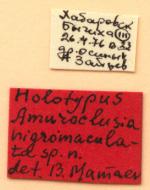 Хабаровск
Бычиха (III)
26.4.76
др. осины
# Зайцев
Holotypus
Amuroclusia
nigromacula-
ta sp. n.
det. B. Mamaev